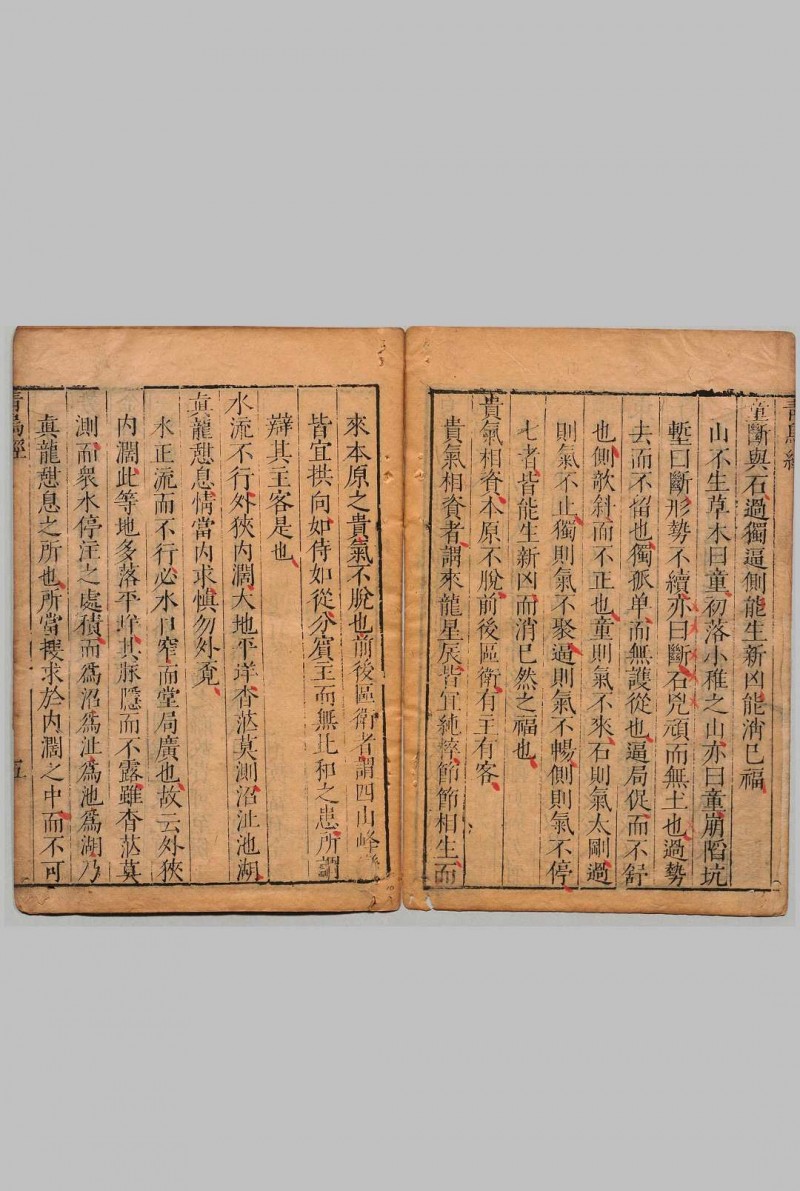 青烏經
童斷與石過獨逼側能生新凶能消巳福
山不生草木曰童初落小稚之山亦曰童崩陷坑
塹曰斷形勢不續亦曰斷石兇頑而無土也過勢
去而不招也獨孤单而無護從也逼局促而不舒
也側欹斜而不正也童則氣不來石則氣太剛過
則氣不止獨則氣不聚逼則氣不暢側則氣不停
七者皆能生新凶而消巳然之福也
貴氣相資本原不脫前後區衛有主有客
貴氣相資者謂來龍星辰皆宜純粹節節相生而
來本原之貴氣不脫也前後區衛者謂四山峰巒
皆宜拱向如侍如從分賓主而無比和之患所謂
辯其主客是也
水流不行外狹内濶大地平洋杳茫莫測沼沚池湖
真龍憇息情當内求慎勿外覔
水正流而不行必水口窄而堂局廣也故云外狹
内濶此等地多落平洋其脉隱而不露雖杳茫莫
測而衆水停注之處積而爲沼爲沚爲池爲湖乃
真龍憇息之所也所當搜求於内濶之中而不可
青烏經
五